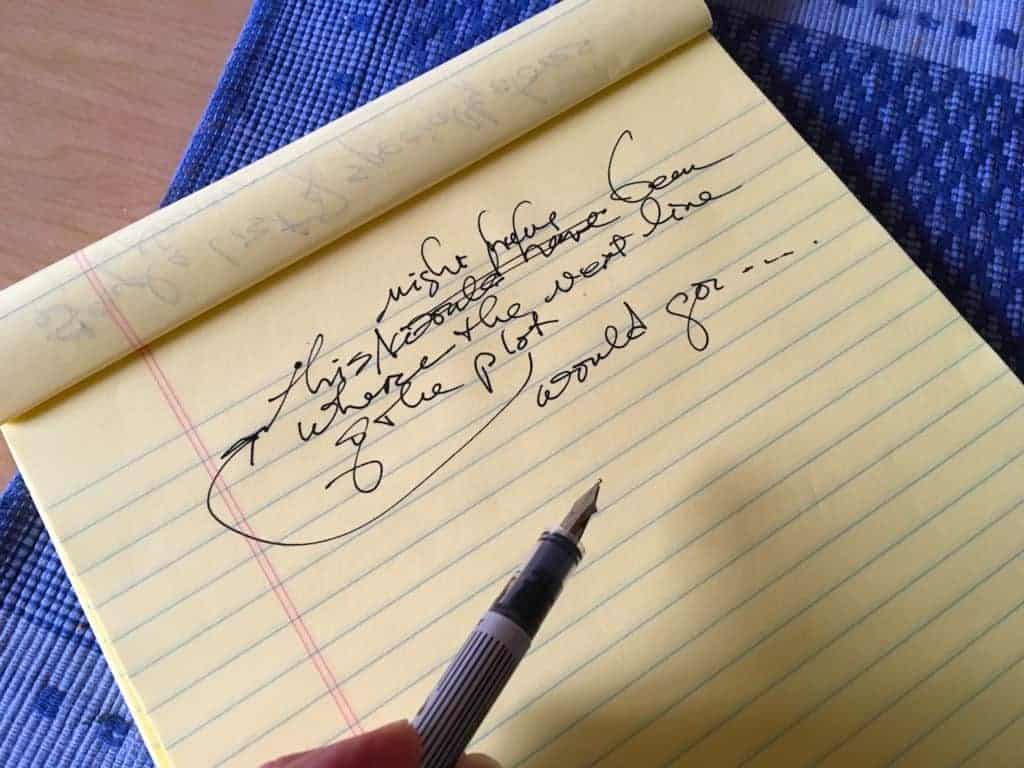 might have
this would have been
where the next line
of the plot
would go...